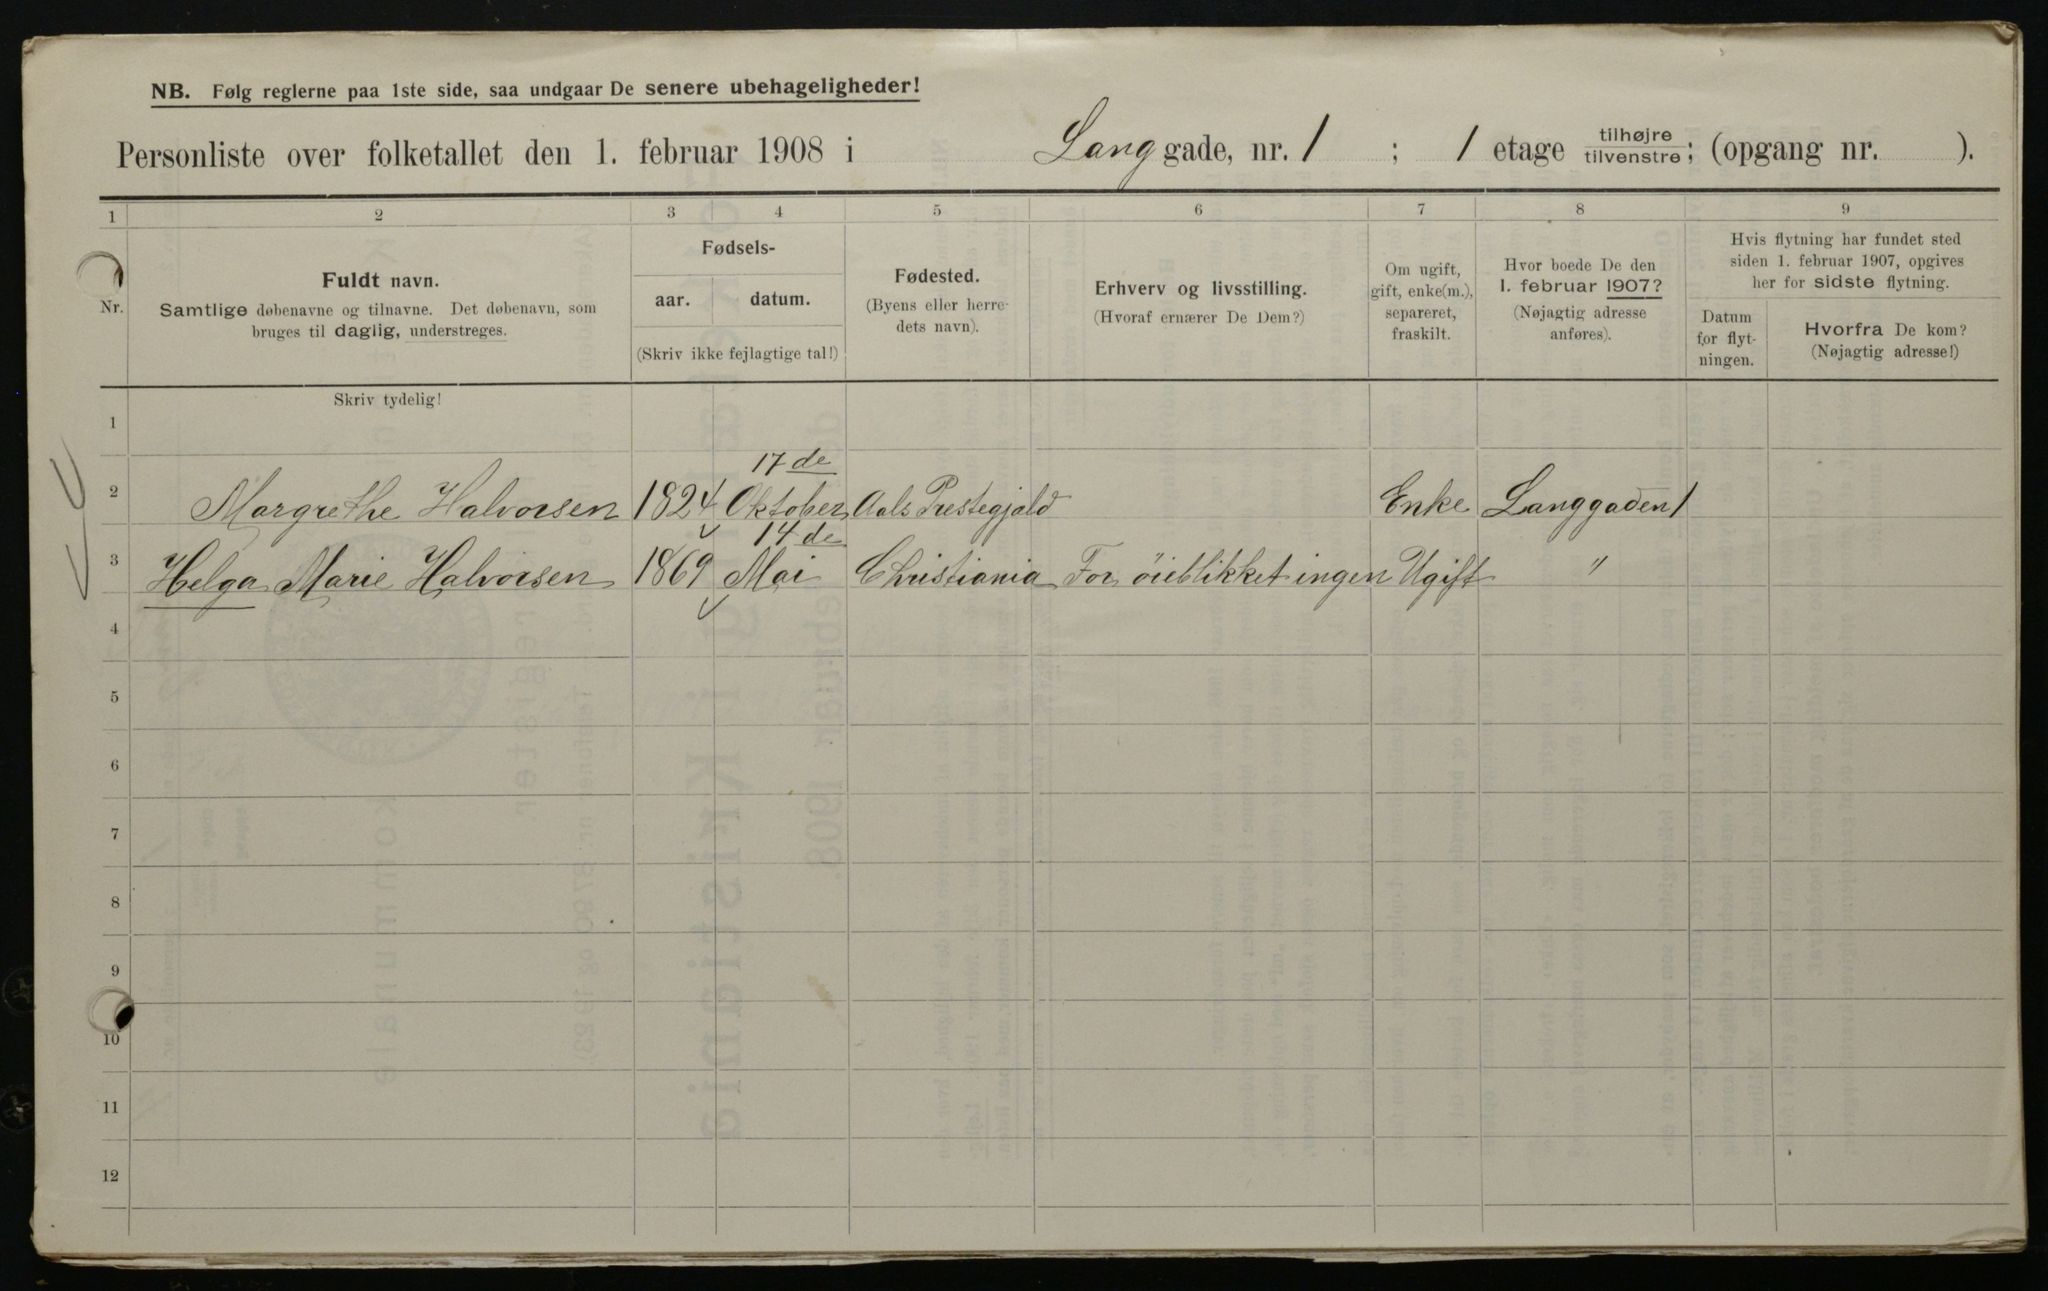 NB. Følg reglerne paa 1ste side, saa undgaar De senere ubehageligheder!
Personliste over folketallet den 1. februar 1908 i Lang gade, nr. 1 ; 1 etage tilhøjre/tilvenstre; (opgang nr. ).
1 2 3 4 5 6 7 8 9
Nr.
Fuldt navn.
Samtlige døbenavne og tilnavne. Det døbenavn, som
bruges til daglig, understreges.
Fødsels-
aar. datum.
(Skriv ikke fejlagtige tal!)
Fødested.
(Byens eller herre-
dets navn).
Erhverv og livsstilling.
(Hvoraf ernærer De Dem?)
Om ugift,
gift, enke(m.),
separeret,
fraskilt.
Hvor boede De den
1. februar 1907?
(Nøjagtig adresse
anføres).
Hvis flytning har fundet sted
siden 1. februar 1907, opgives
her for sidste flytning.
Datum
for flyt-
ningen.
Hvorfra De kom?
(Nøjagtig adresse!)
Skriv tydelig!
1
17de
2 Margrethe Halvorsen 1824 Oktober Aals Prestegjæld Enke Langgaden 1
14de
3 Helga Marie Halvorsen 1869 Mai Christiania For öieblikket ingen Ugift "
4
5
6
7
8
9
10
11
12